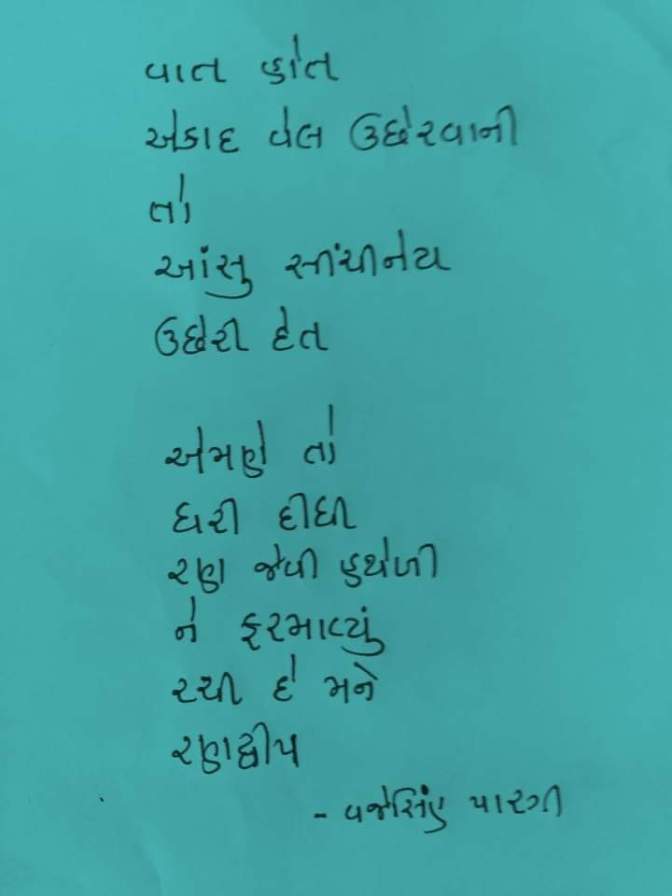 વાત હોત
એકાદ વેલ ઉછેરવાની
તો
આંસુ સીંચીનેય
ઉછેરી દેત
એમણે તો
ધરી દીધી
રણ જેવી હથેળી
ને ફરમાવ્યું
રચી દે મને
રણદ્વીપ
- વજેસિંહ પારગી